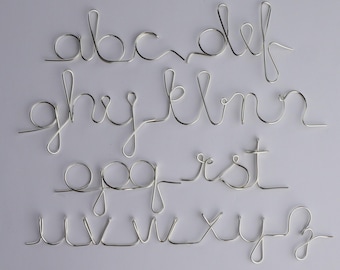 abcdef
ghijklmn
opqrst
uvwxyz